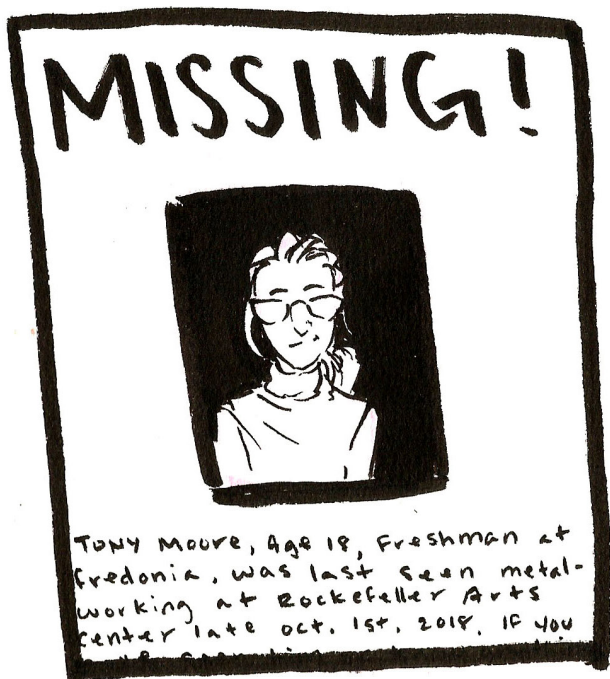 MISSING!
TONY MOORE, Age 18, Freshman at
Fredonia, was last seen metal-
working at Rockefeller Arts
center late oct. 1st, 2018. IF you